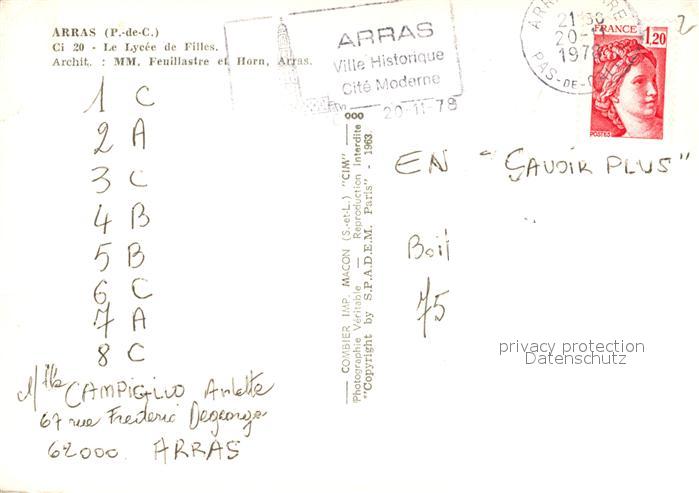 ARRAS (P.-de-C.)
Ci 20 - Le Lycée de Filles.
Archit. : MM. Feuillastre et Horn, Arras.
ARRAS
Ville Historique
Cité Moderne
20-11-78
21
20-
1978
PAS-DE-
FRANCE
1,20
POSTES
2
1 C
2 A
3 C
4 B
5 B
6 C
7 A
8 C
Mlle CAMPIGLIO Arlette
67 rue Frédéric Degeorge
62000. ARRAS
COMBIER IMP. MACON (S.-et-L.) "CIM"
Photographie Véritable — Reproduction Interdite
"Copyright by S.P.A.D.E.M. Paris" - 1963
EN "SAVOIR PLUS"
75
privacy protection
Datenschutz